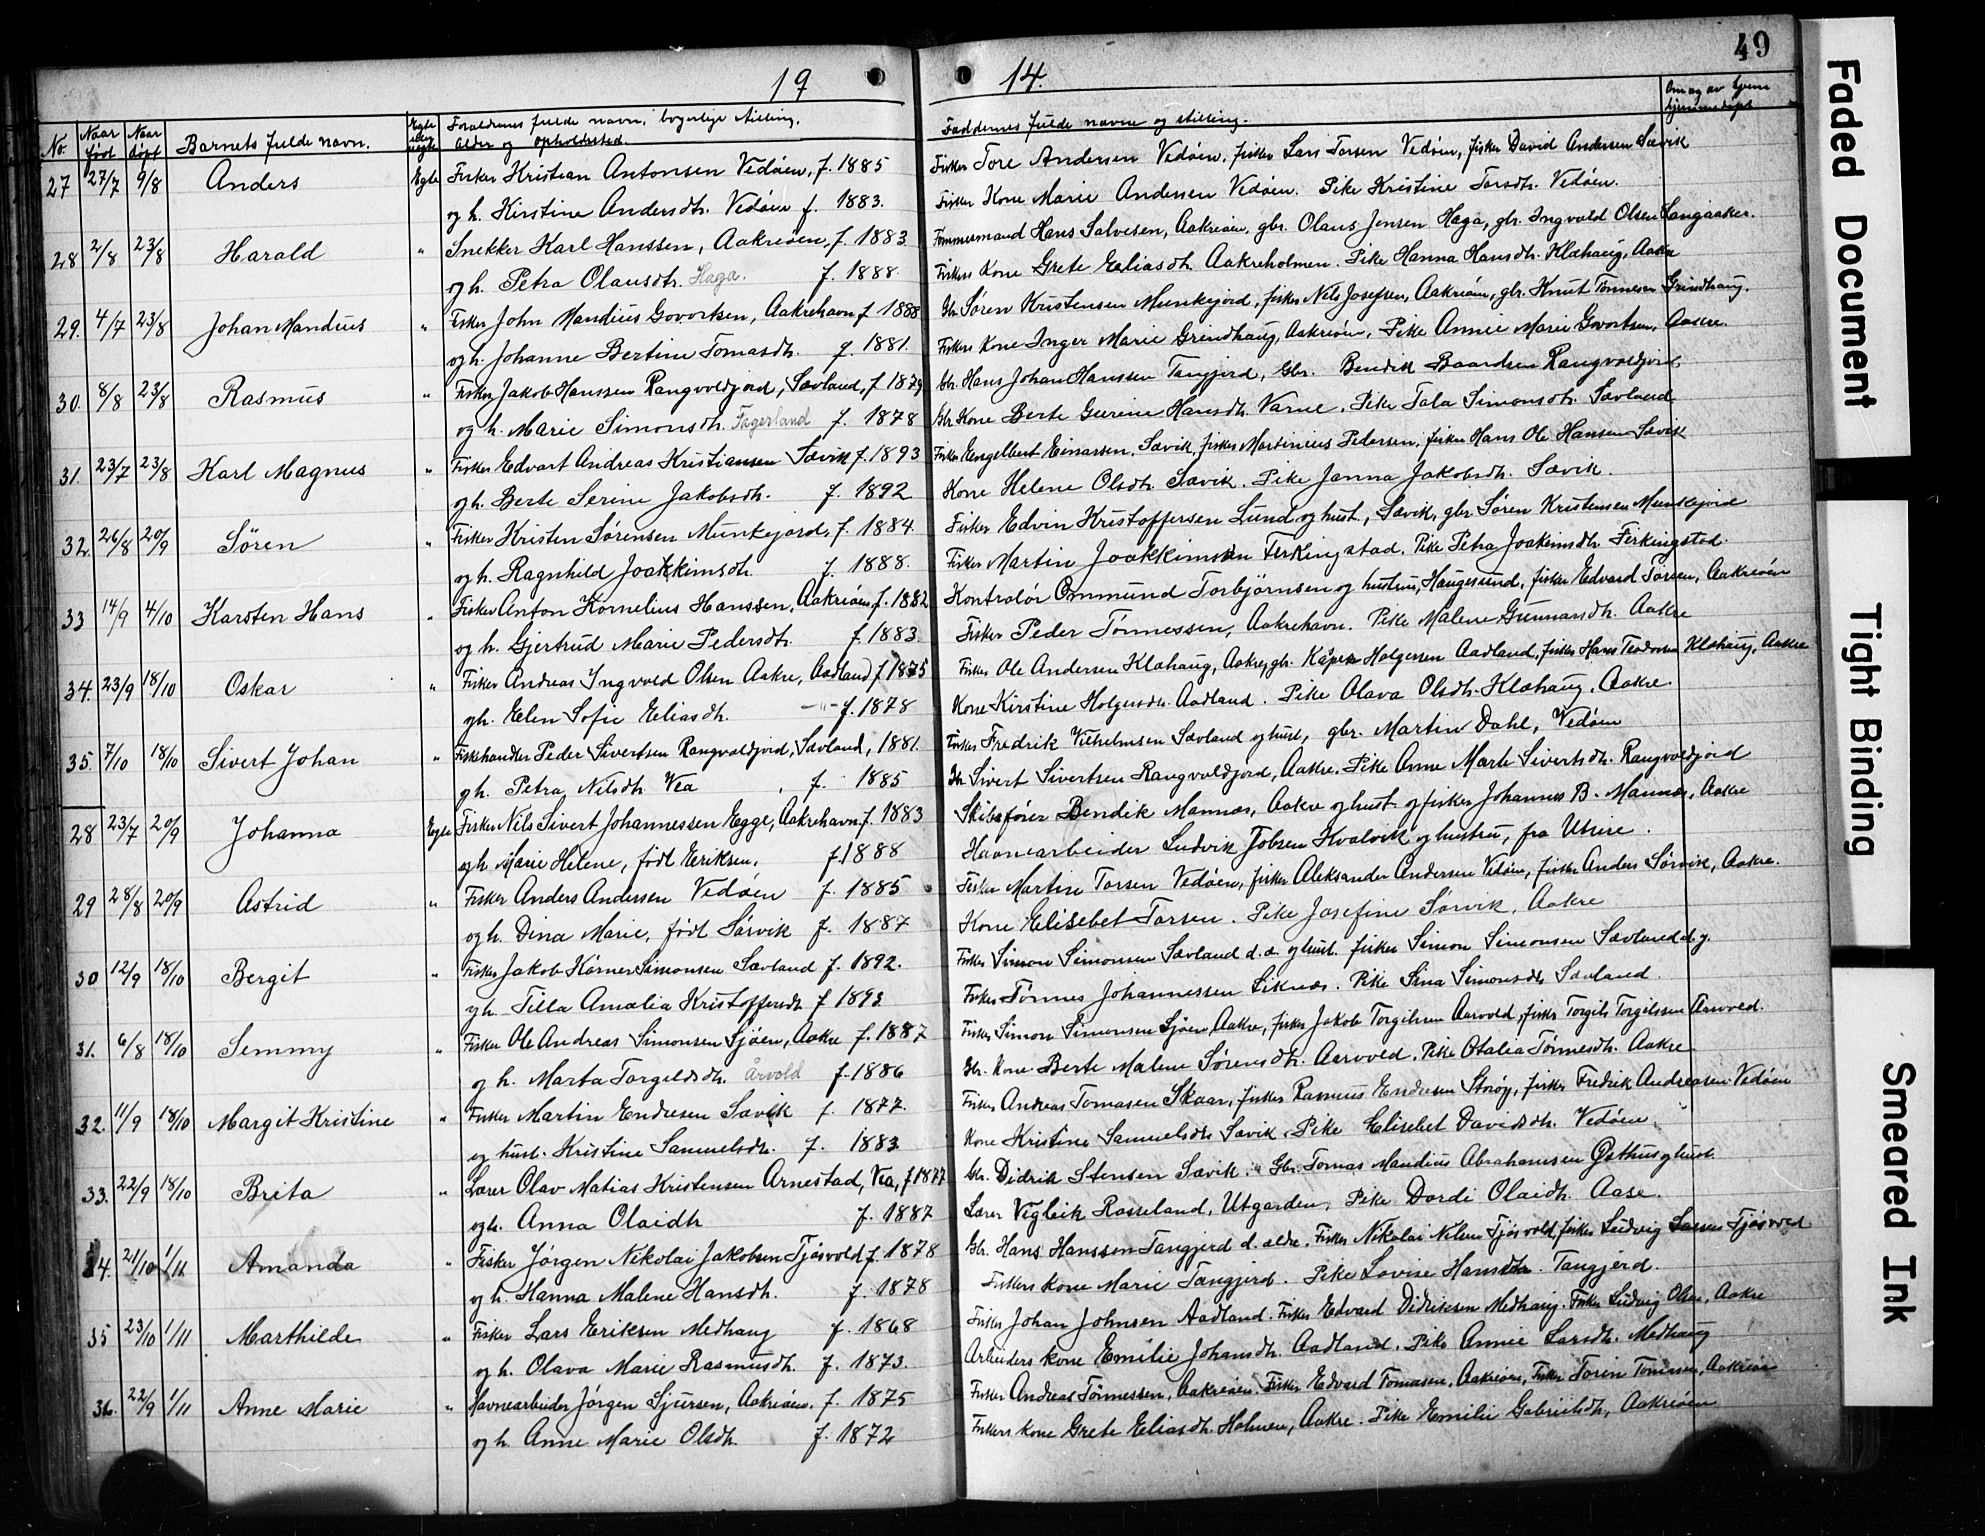 49
19 14.
No. Naar født Naar døpt Barnets fulde navn. Egte eller uegte Forældrenes fulde navn, borgerlige stilling, alder og opholdssted. Faddernes fulde navne og stilling.
27 27/7 9/8 Anders Egte Fisker Kristian Antonsen Vedøen, f. 1885 Fisker Tore Andersen Vedøen, fisker Lars Torsen Vedøen, fisker David Andersen Sævik
og h. Kirstine Andersdtr. Vedøen f. 1883. Fisker Kone Marie Andersen Vedøen. Pike Kristine Torsdtr. Vedøen.
28 2/8 23/8 Harald " Snekker Karl Hanssen, Aakreøen, f. 1883 Tømmermand Hans Salvesen, Aakreøen, gbr. Olaus Jensen Haga, gbr. Ingvald Olsen Langaaker.
og h. Petra Olausdtr. Haga. f. 1888. Fiskers Kone Grete Eliasdtr. Aakreholmen. Pike Hanna Hansdtr. Klahaug, Aakre
29. 4/7 23/8 Johan Mandius " Fisker John Mandius Govortsen, Aakrehavn f 1888 Gbr. Søren Kristensen Munkejord, fisker Nils Josefsen, Aakreøen, gbr. Knut Tønnesen Grindhaug.
og h. Johanne Bertine Tomasdtr. f. 1881. Fiskers Kone Inger Marie Grindhaug, Aakreøen, Pike Annie Marie Govortsen, Aakre.
30. 8/8 23/8 Rasmus " Fisker Jakob Hanssen Rangvoldjord, Sævland, f 1879 Gbr. Hans Johan Hanssen Tangjerd, Gbr. Bendik Baardsen Rangvoldjord,
og h. Marie Simonsdtr. Fagerland f. 1878 Gbr. Kone Berte Gurine Hansdtr. Varne. Pike Tala Simonsdtr. Sævland
31. 23/7 23/8 Karl Magnus " Fisker Edvart Andreas Kristiansen Sævik f. 1893 Fisker Engelbert Einarsen, Sævik, fisker Martinius Pedersen, fisker Hans Ole Hansen Sævik
og h. Berte Serine Jakobsdtr. f. 1892 Kone Helene Olsdtr. Sævik. Pike Janna Jakobsdtr. Sævik.
32. 26/8 20/9 Søren " Fisker Kristen Sørensen Munkejord, f. 1884. Fisker Edvin Kristoffersen Lund og hust., Sævik, gbr. Søren Kristensen Munkejord
og h. Ragnhild Joakkimsdtr. f. 1888. Fisker Martin Joakkimsen Ferkingstad. Pike Petra Joakimsdtr. Ferkingstad.
33 14/9 4/10 Karsten Hans " Fisker Anton Kornelius Hanssen, Aakreøen, f. 1882 Kontrolør Ommund Torbjørnsen og hustru, Haugesund, fisker Edvard Torsen, Aakreøen
og h. Gjertrud Marie Pedersdtr. f. 1883. Fisker Peder Tønnessen, Aakrehavn. Pike Malene Gunnarsdtr. Aakre
34. 23/9 18/10 Oskar " Fisker Andreas Yngvold Olsen Aakre, Aadland f 1875 Fisker Ole Andersen Klahaug, Aakre, gbr. Holgersen Aadland, fisker Hans Teodorsen Klahaug, Aakre
og h. Elen Sofie Eliasdtr. —"— f. 1878 Kone Kirstine Holgersdtr. Aadland. Pike Olava Olsdtr. Klahaug. Aakre.
35. 7/10 18/10 Sivert Johan " Fiskehandler Peder Sivertsen Rangvoldjord, Sævland, 1881. Fisker Fredrik Vilhelmsen Sævland og hust, gbr. Martin Dahl, Vedøen
og h. Petra Nilsdtr. Vea f. 1885 Gbr Sivert Sivertsen Rangvoldjord, Aakre. Pike Anne Marte Sivertsdtr. Rangvoldjord
28 23/7 20/9 Johanna Egte Fisker Nils Sivert Johannessen Egge, Aakrehavn f. 1883 Skibsfører Bendik Mannæs, Aakre og hust. og fisker Johannes B. Mannæs, Aakre
og h. Marie Helene, født Eriksen. f. 1888 Havnearbeider Ludvik Jobsen Kvalvik og hustru, fra Utsire.
29 28/8 20/9 Astrid " Fisker Anders Andersen Vedøen f. 1885 Fisker Martin Torsen Vedøen, fisker Aleksander Andersen Vedøen, fisker Anders Sørvik, Aakre.
og h. Dina Marie, født Sørvik f. 1887 Kone Elisebet Torsen. Pike Josefine Sørvik. Aakre
30 12/9 18/10 Bergit " Fisker Jakob Kørner Simonsen Sævland f. 1892. Fisker Simon Simonsen Sævland d. æ. og hust. fisker Simon Simonsen Sævland d. y.
og h. Tilla Amalia Kristoffersdtr. f 1893 Fisker Tønnes Johannessen Liknæs. Pike Sina Simonsdtr. Sævland.
31. 6/8 18/10 Semmy " Fisker Ole Andreas Simonsen Sjøen, Aakre f. 1887 Fisker Simon Simonsen Sjøen, Aakre, fisker Jakob Torgilsen Aarvold, fisker Torgils Torgilssen Aarvold.
og h. Marta Torgeldsdtr. Årvold f. 1886 Gbr. Kone Berte Malene Sørensdtr. Aarvold. Pike Otalia Tønnesdtr. Aakre
32. 11/9 18/10 Margit Kristine " Fisker Martin Endresen Sævik f. 1877. Fisker Andreas Tomasen Skaar, fisker Rasmus Endresen Storøy, fisker Fredrik Andreasen Vedøen
og hust. Kristine Samuelsdtr. f. 1883 Kone Kristine Samuelsdtr Sævik. Pike Elisebet Davidsdtr. Vedøen
33. 22/9 18/10 Brita " Lærer Olav Matias Kristensen Arnestad, Vea, f 1877 Gbr. Didrik Stensen Sævik. Gbr. Tomas Mandius Abrahamsen Østhus og hust.
og h. Anna Olaidtr f. 1887 Lærer Vigleik Rosseland, Utgarden, Pike Dordi Olaidtr. Aase.
34. 21/10 1/11 Amanda " Fisker Jørgen Nikolai Jakobsen Tjøsvold f. 1878 Gbr. Hans Hanssen Tangjerd d. ældre. Fisker Nikolai Nilsen Tjøsvold, fisker Ludvig Larsen Tjøsvold
og h. Hanna Malene Hansdtr. f. 1878 Fiskers kone Marie Tangjerd. Pike Lovise Hansdtr. Tangjerd.
35 23/10 1/11 Marthilde " Fisker Lars Eriksen Medhaug f. 1868 Fisker Johan Johnsen Aadland. Fisker Edvard Didriksen Medhaug. Fisker Ludvig Olsen, Aakre
og h. Olava Marie Rasmusdtr. f. 1873. Arbeiders kone Emilie Johansdtr. Aadland. Pike Annie Larsdtr. Medhaug
36. 22/9 1/11 Anne Marie " Havnearbeider Jørgen Sjursen, Aakreøen. f. 1875 Fisker Andreas Tønnessen, Aakreøen. Fisker Edvard Tomasen, Aakreøen, Fisker Torin Tomasen, Aakreøen
og h Anne Marie Olsdtr. f. 1872 Fiskers kone Grete Eliasdtr. Holmen, Aakre. Pike Emilie Gabrielsdtr, Aakreøen
Faded Document
Tight Binding
Smeared Ink